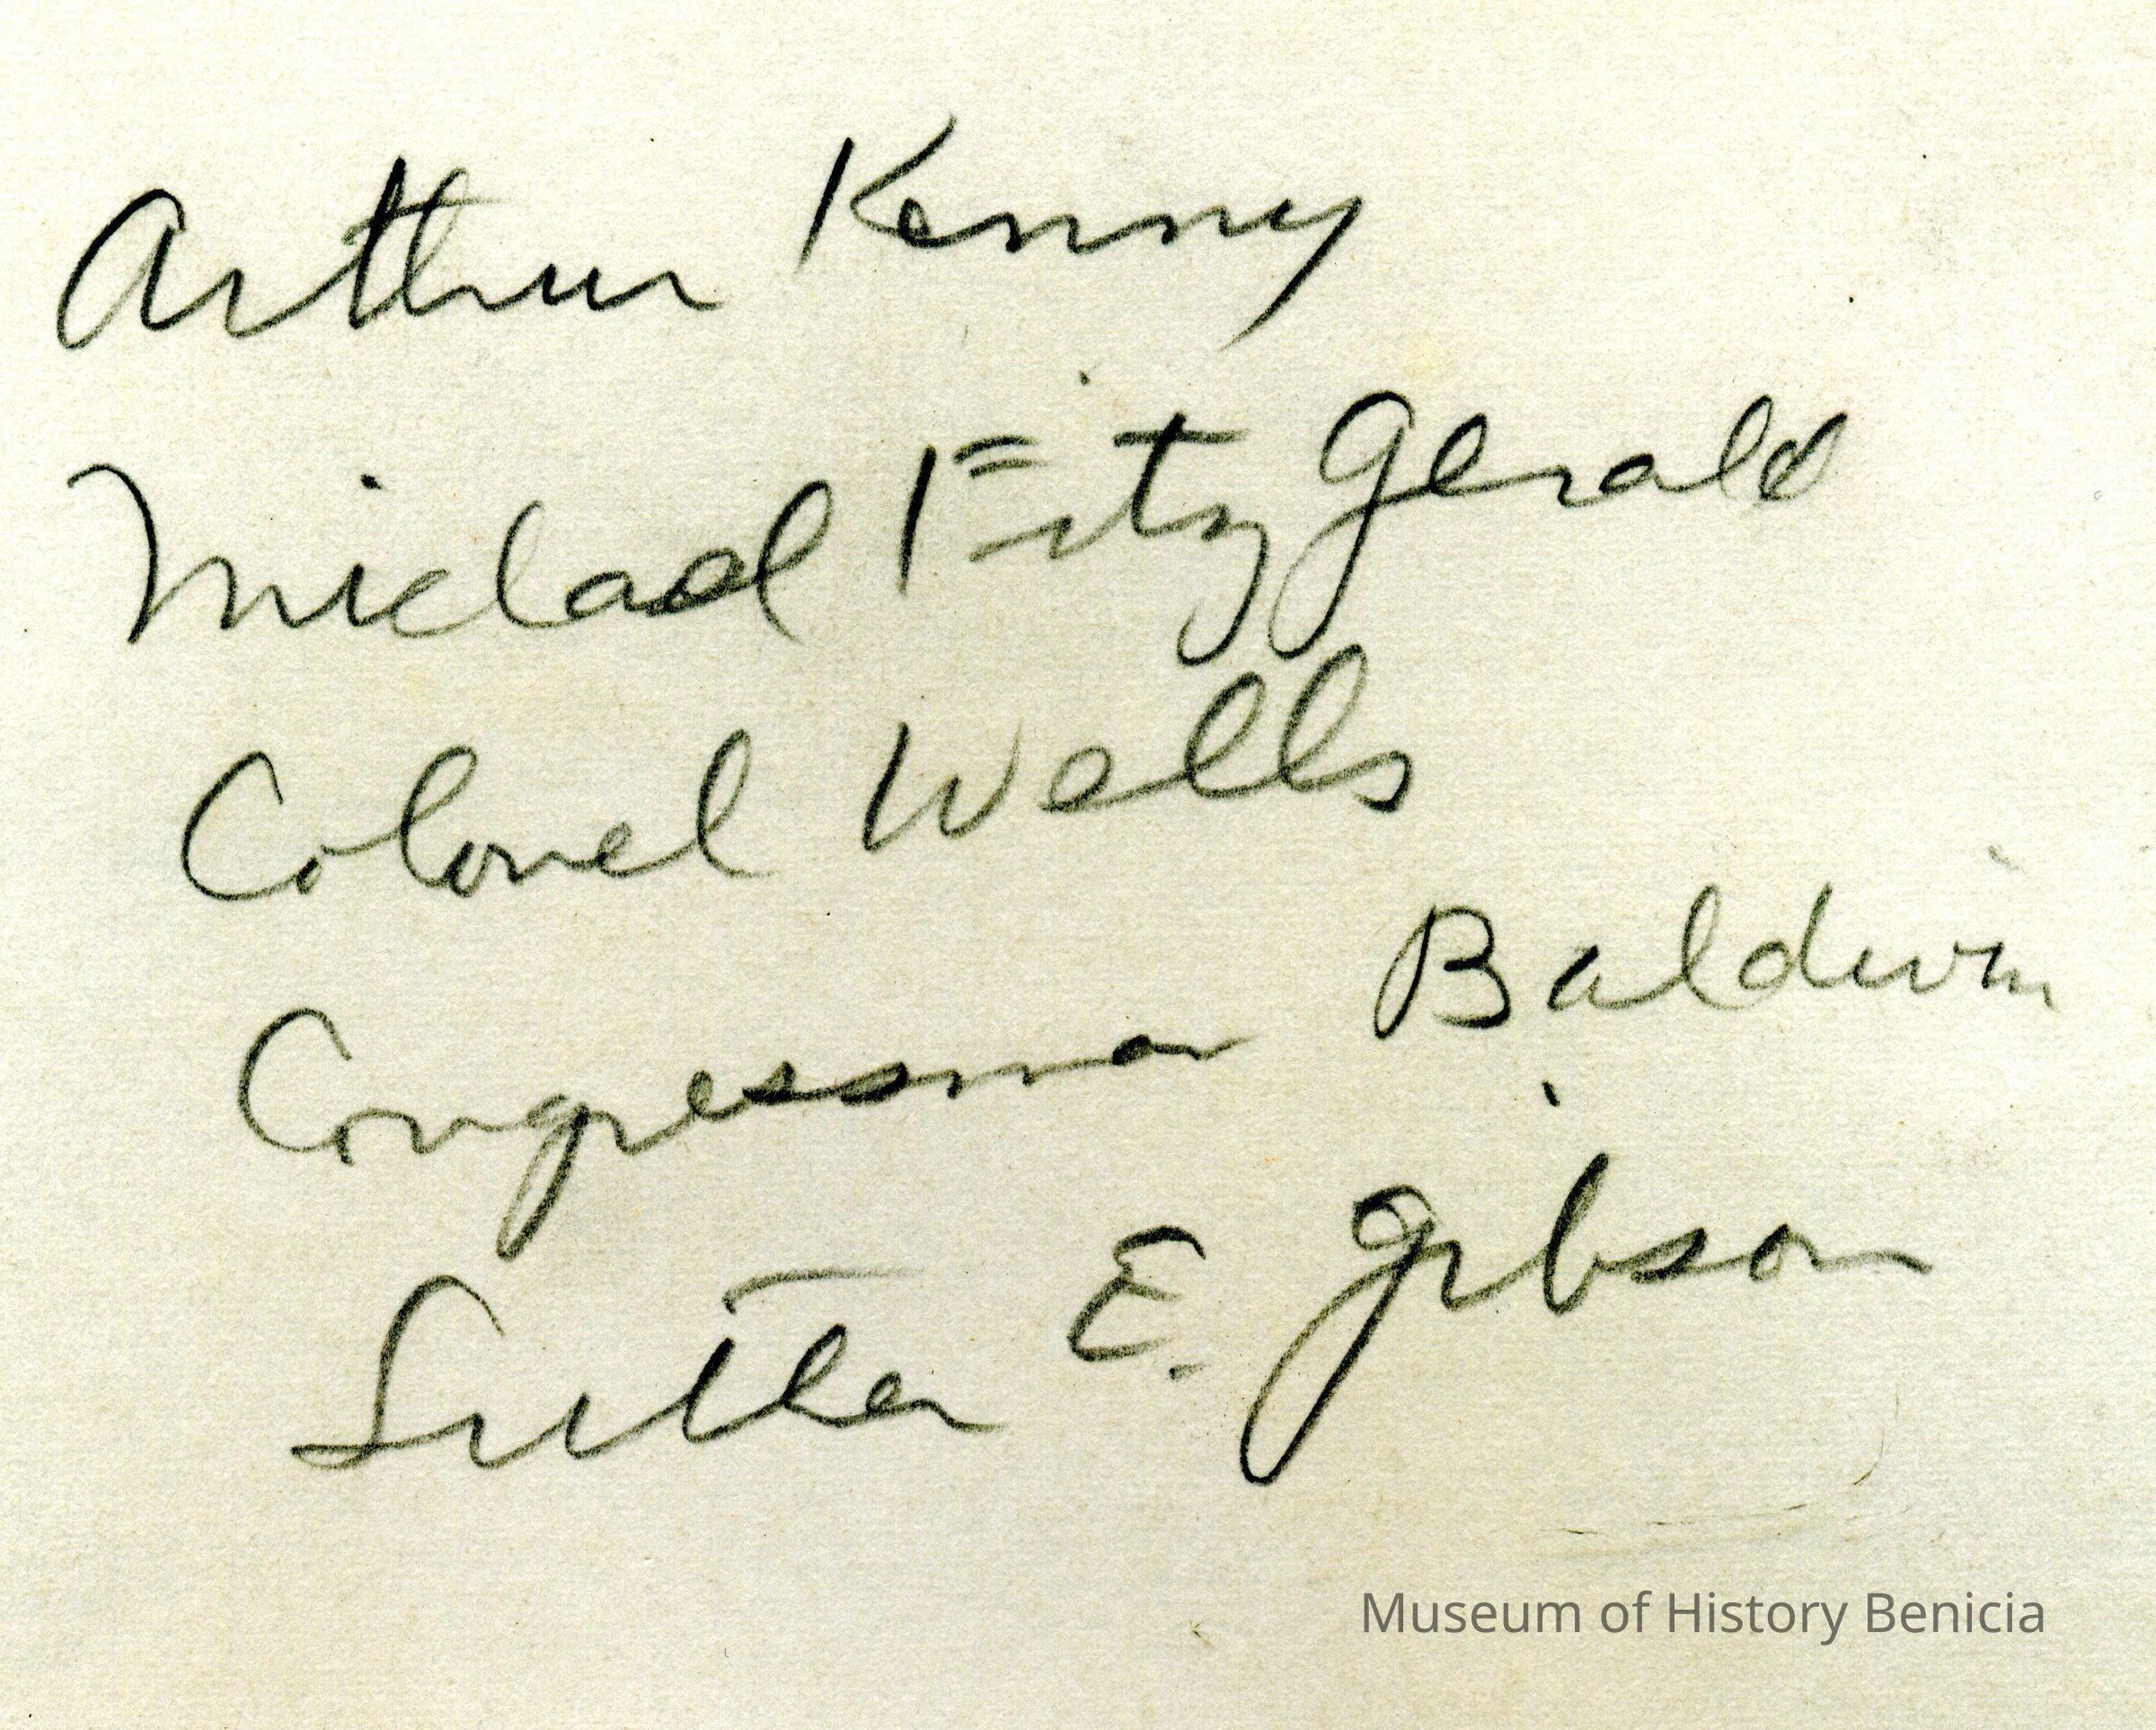 Arthur Kenny
Michael FitzGerald
Colonel Wells
Congressman Baldwin
Luther E. Gibson
Museum of History Benicia